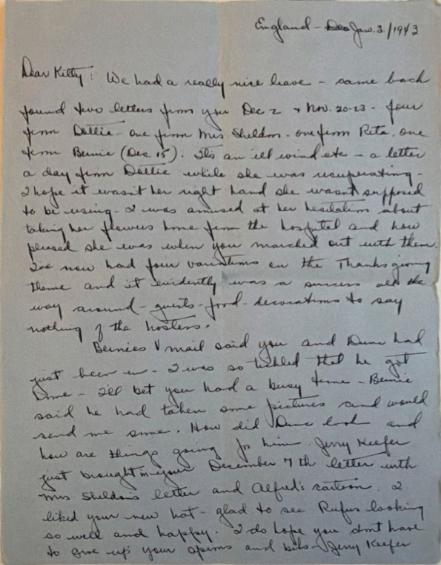 England - Jan. 3/1943
Dear Kitty: We had a really nice leave - came back
found two letters from you Dec 2 & Nov. 20-23 - four
from Dellie - one from Mrs Sheldon - one from Rita, one
from Bernie (Dec 15). It's an ill wind etc - a letter
a day from Dellie while she was recuperating -
I hope it wasn't her right hand she wasn't supposed
to be using. I was amused at her hesitation about
taking her flowers home from the hospital and how
pleased she was when you marched out with them
I've now had four variations on the Thanksgiving
theme and it evidently was a success all the
way around - guests - food - decorations to say
nothing of the hostess.
Bernie's V mail said you and Dune had
just been in - I was so tickled that he got
time - I'll bet you had a busy time - Bernie
said he had taken some pictures and would
send me some. How did Dune look and
how are things going for him. Jerry Keefer
just brought me your December 7th letter with
Mrs Sheldon's letter and Alfred's cartoon. I
liked your new hat - glad to see Rufus looking
so well and happy. I do hope you don't have
to give up your and - Jerry Keefer